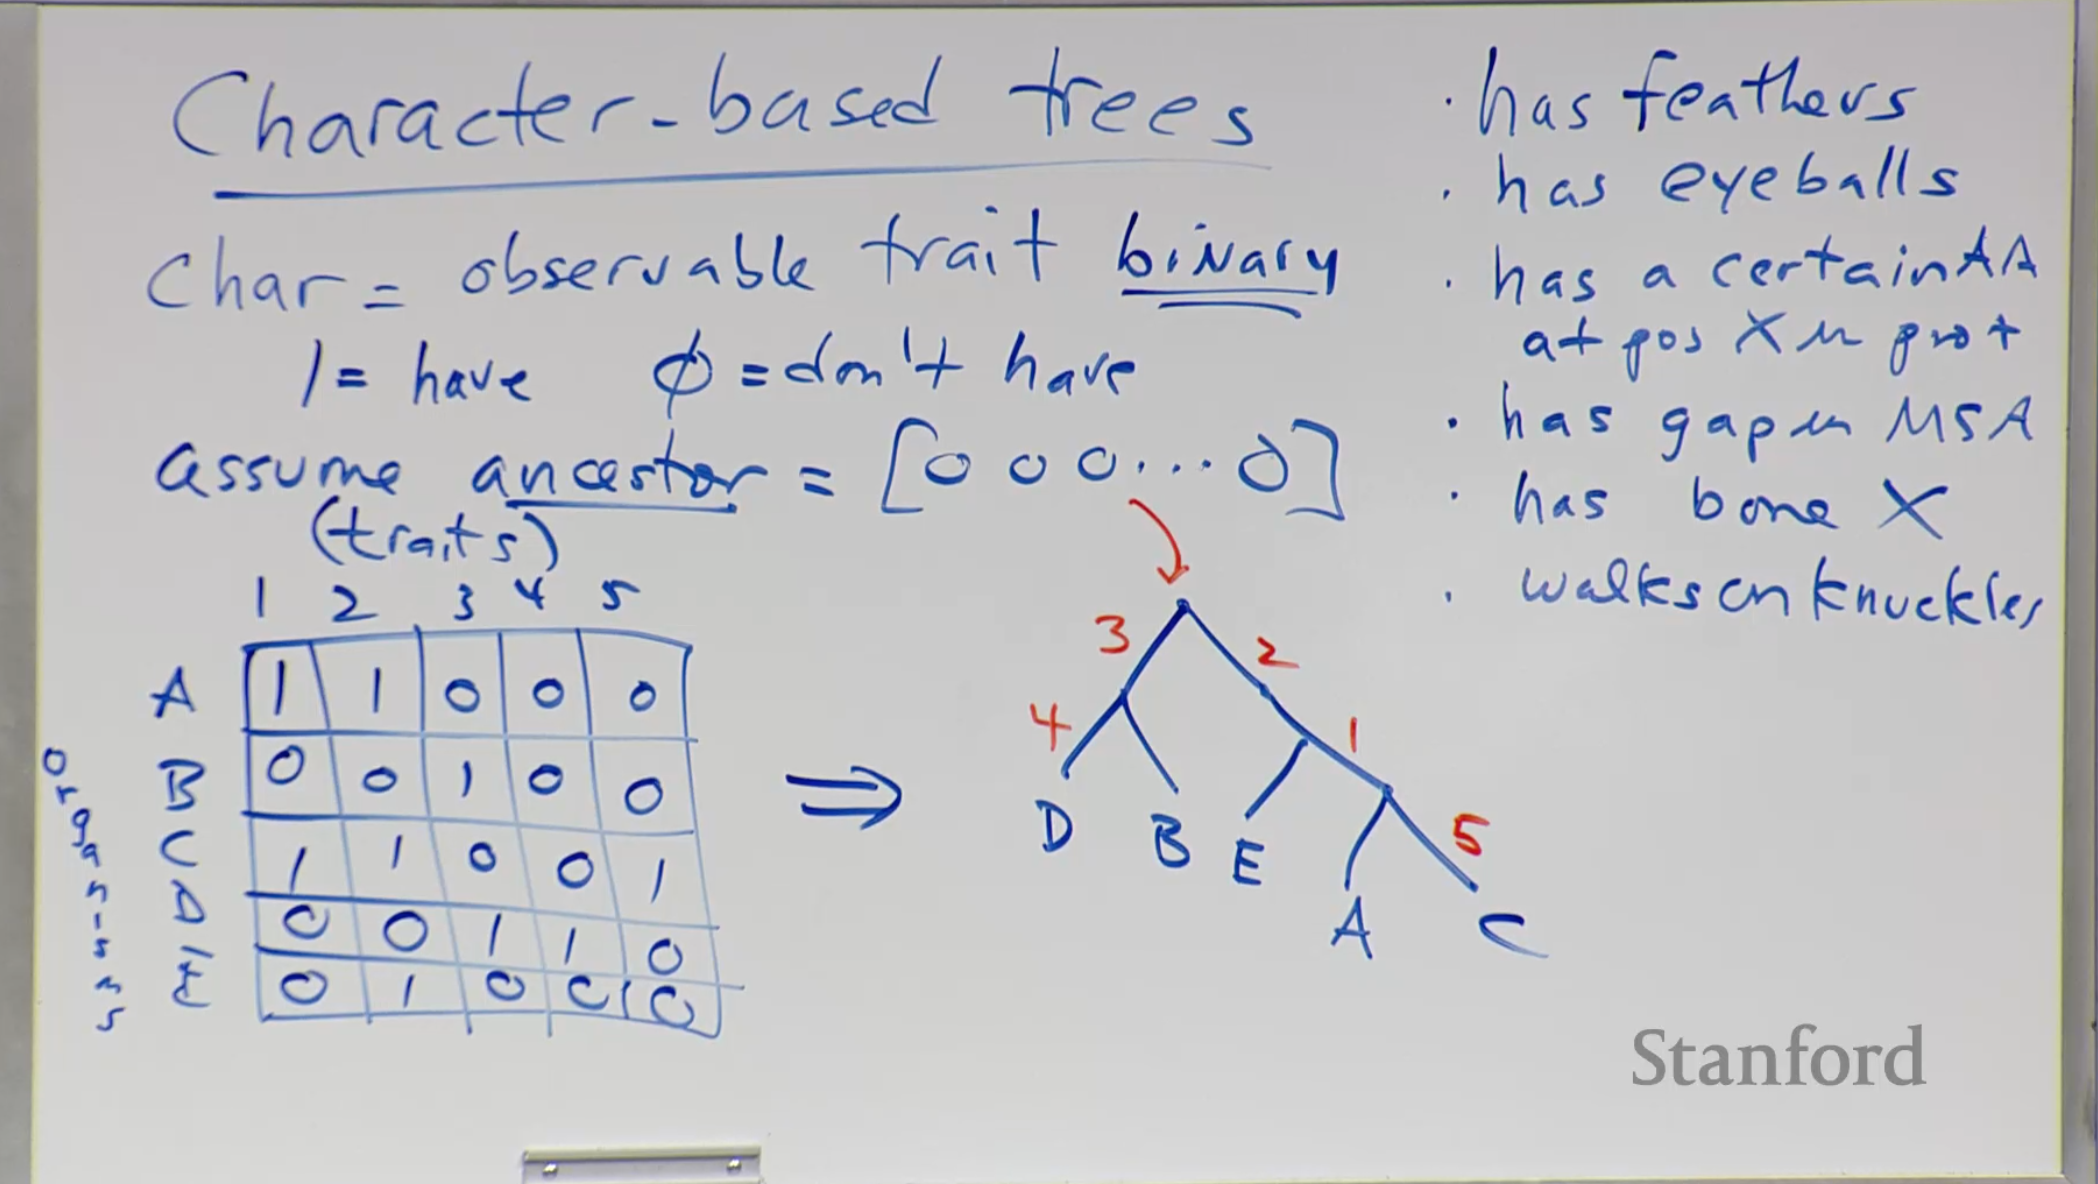 Character-based trees
char = observable trait binary
1 = have ϕ = don't have
assume ancestor = [0 0 0 ... 0]
(traits)
1 2 3 4 5
A 1 1 0 0 0
B 0 0 1 0 0
C 1 1 0 0 1
D 0 0 1 1 0
E 0 1 0 0 0
organisms
⇒
3 2
4 1
5
D B E
A C
· has feathers
· has eyeballs
· has a certain AA
at pos X in prot
· has gap in MSA
· has bone X
· walks on knuckles
Stanford